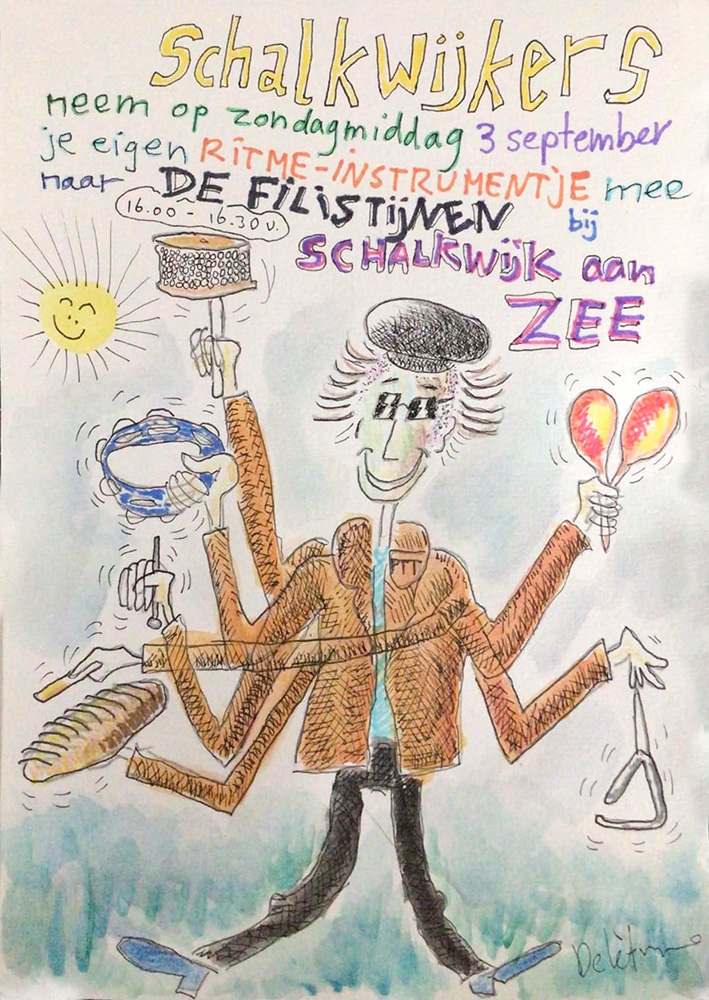 Schalkwijkers
neem op zondagmiddag 3 september
je eigen RITME-INSTRUMENTJE mee
naar DE FILISTIJNEN bij
16.00 - 16.30 u.
SCHALKWIJK aan
ZEE